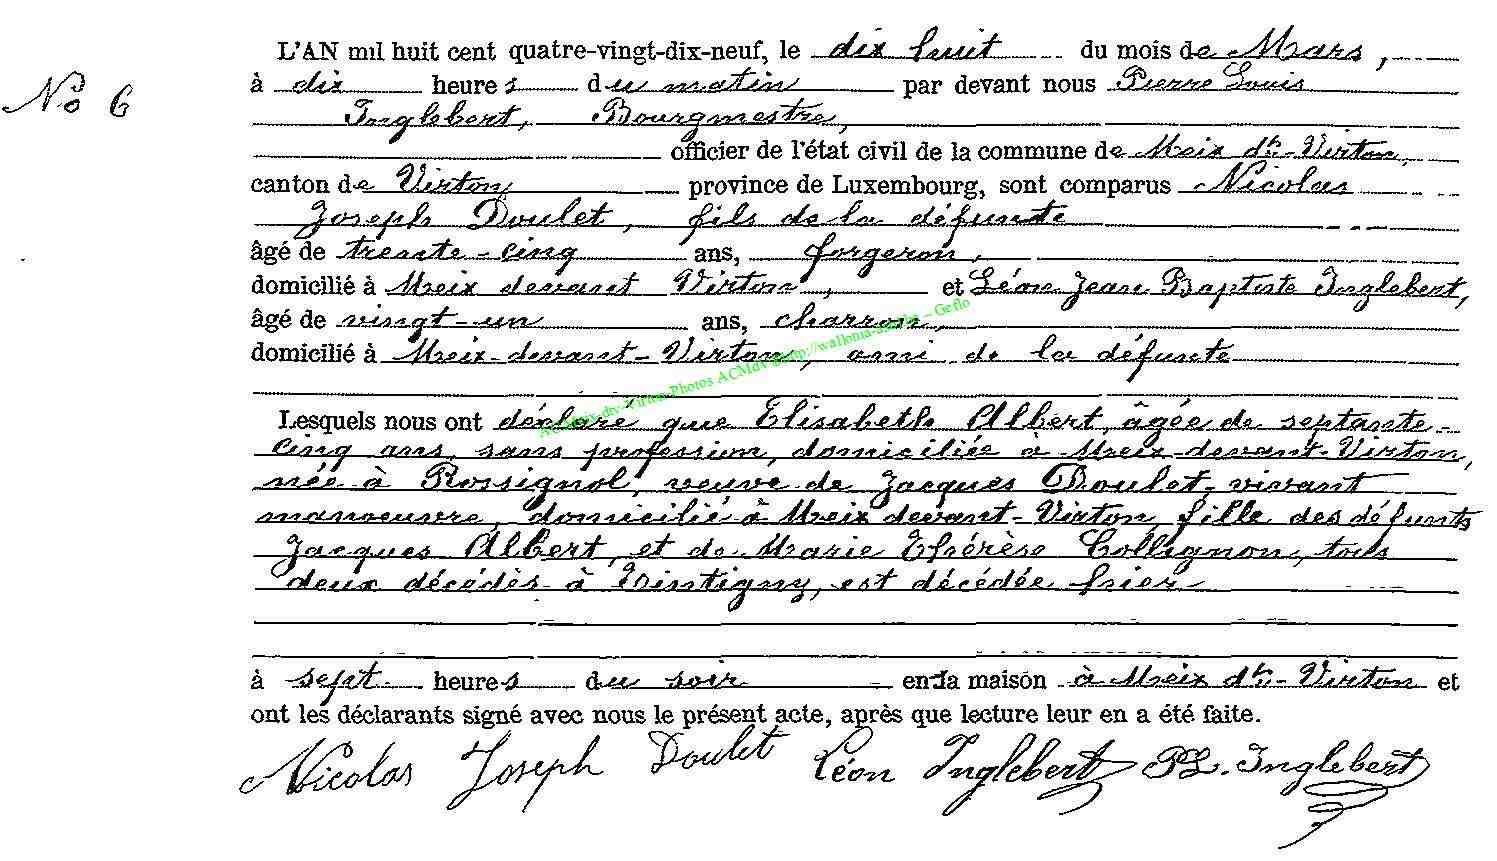 L'AN mil huit cent quatre-vingt-dix-neuf, le dix huit du mois de Mars,
No 6
à dix heures du matin par devant nous Pierre Louis
Inglebert, Bourgmestre,
officier de l'état civil de la commune de Meix dt.-Virton,
canton de Virton province de Luxembourg, sont comparus Nicolas
Joseph Doulet, fils de la défunte
âgé de trente-cinq ans, forgeron,
domicilié à Meix devant Virton, et Léon Jean Baptiste Inglebert,
âgé de vingt-un ans, charron,
domicilié à Meix-devant-Virton, ami de la défunte
Lesquels nous ont déclaré que Elisabeth Albert, âgée de septante-
cinq ans, sans profession, domiciliée à Meix-devant-Virton,
née à Rossignol, veuve de Jacques Doulet, vivant
manoeuvre, domicilié à Meix devant-Virton, fille des défunts
Jacques Albert, et de Marie Thérèse Collignon, tous
deux décédés à Tintigny, est décédée hier
à sept heures du soir en la maison à Meix dt.-Virton et
ont les déclarants signé avec nous le présent acte, après que lecture leur en a été faite.
Nicolas Joseph Doulet Léon Inglebert PL. Inglebert